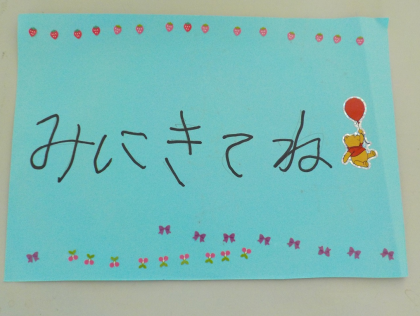 みにきてね